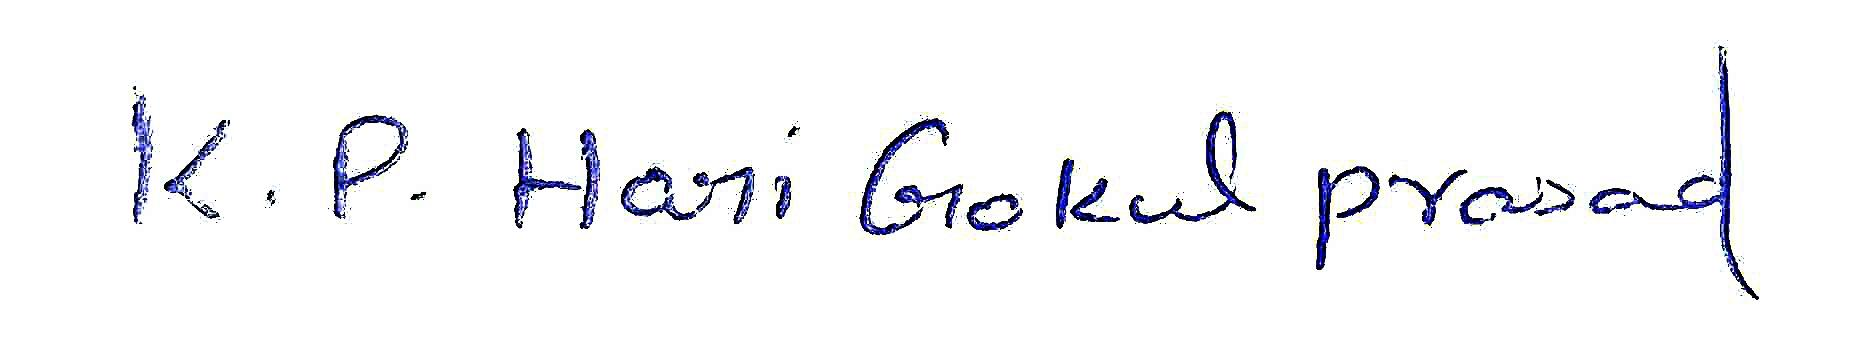 K. P. Hari Gokul prasad